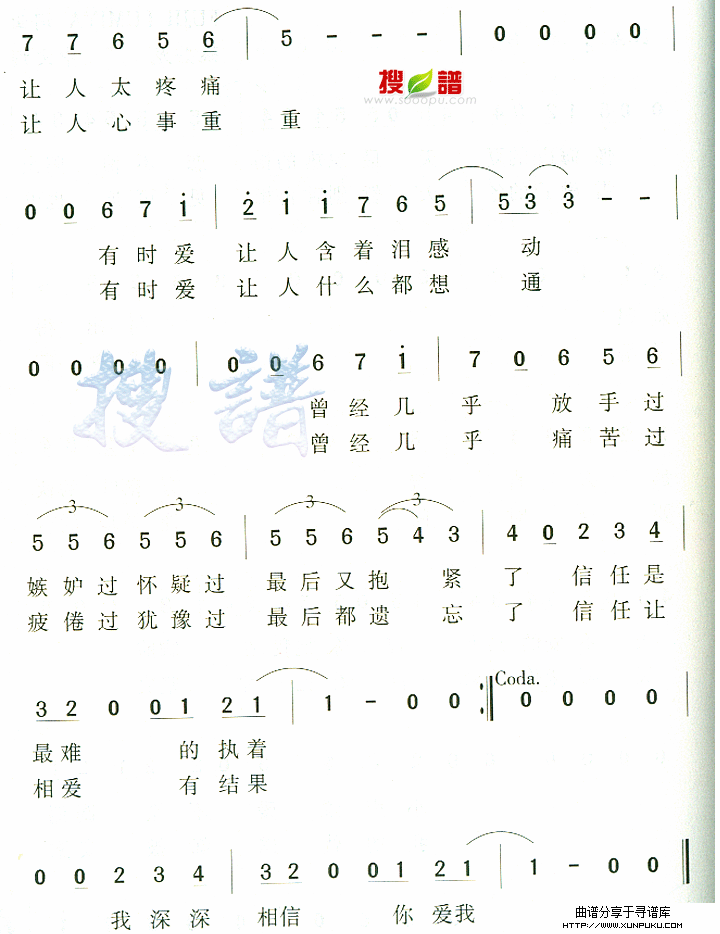 7 7 6 5 6 | 5 - - - | 0 0 0 0 |
让人太疼痛
让人心事重 重
搜 譜
www.sooopu.com
0 0 6 7 i | 2 i i 7 6 5 | 5 3 3 - - |
有时爱 让人含着泪感 动
有时爱 让人什么都想 通
0 0 0 0 | 0 0 6 7 i | 7 0 6 5 6 |
搜 譜
曾经几 乎 放手过
曾经几 乎 痛苦过
3 3 3 3
5 5 6 5 5 6 | 5 5 6 5 4 3 | 4 0 2 3 4 |
嫉妒过怀疑过 最后又抱 紧 了 信任是
疲倦过犹豫过 最后都遗 忘 了 信任让
Coda.
3 2 0 0 1 2 1 | 1 - 0 0 :| 0 0 0 0 |
最难 的执着
相爱 有结果
0 0 2 3 4 | 3 2 0 0 1 2 1 | 1 - 0 0 ||
我深深 相信 你 爱我
曲谱分享于寻谱库
HTTP://WWW.XUNPUKU.COM